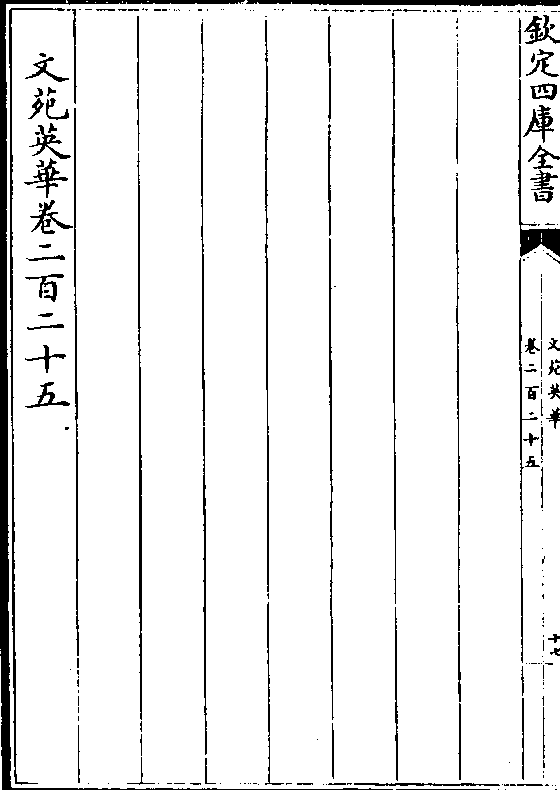 欽定四庫全書
文苑英華
卷二百二十五
十七
文苑英華卷二百二十五